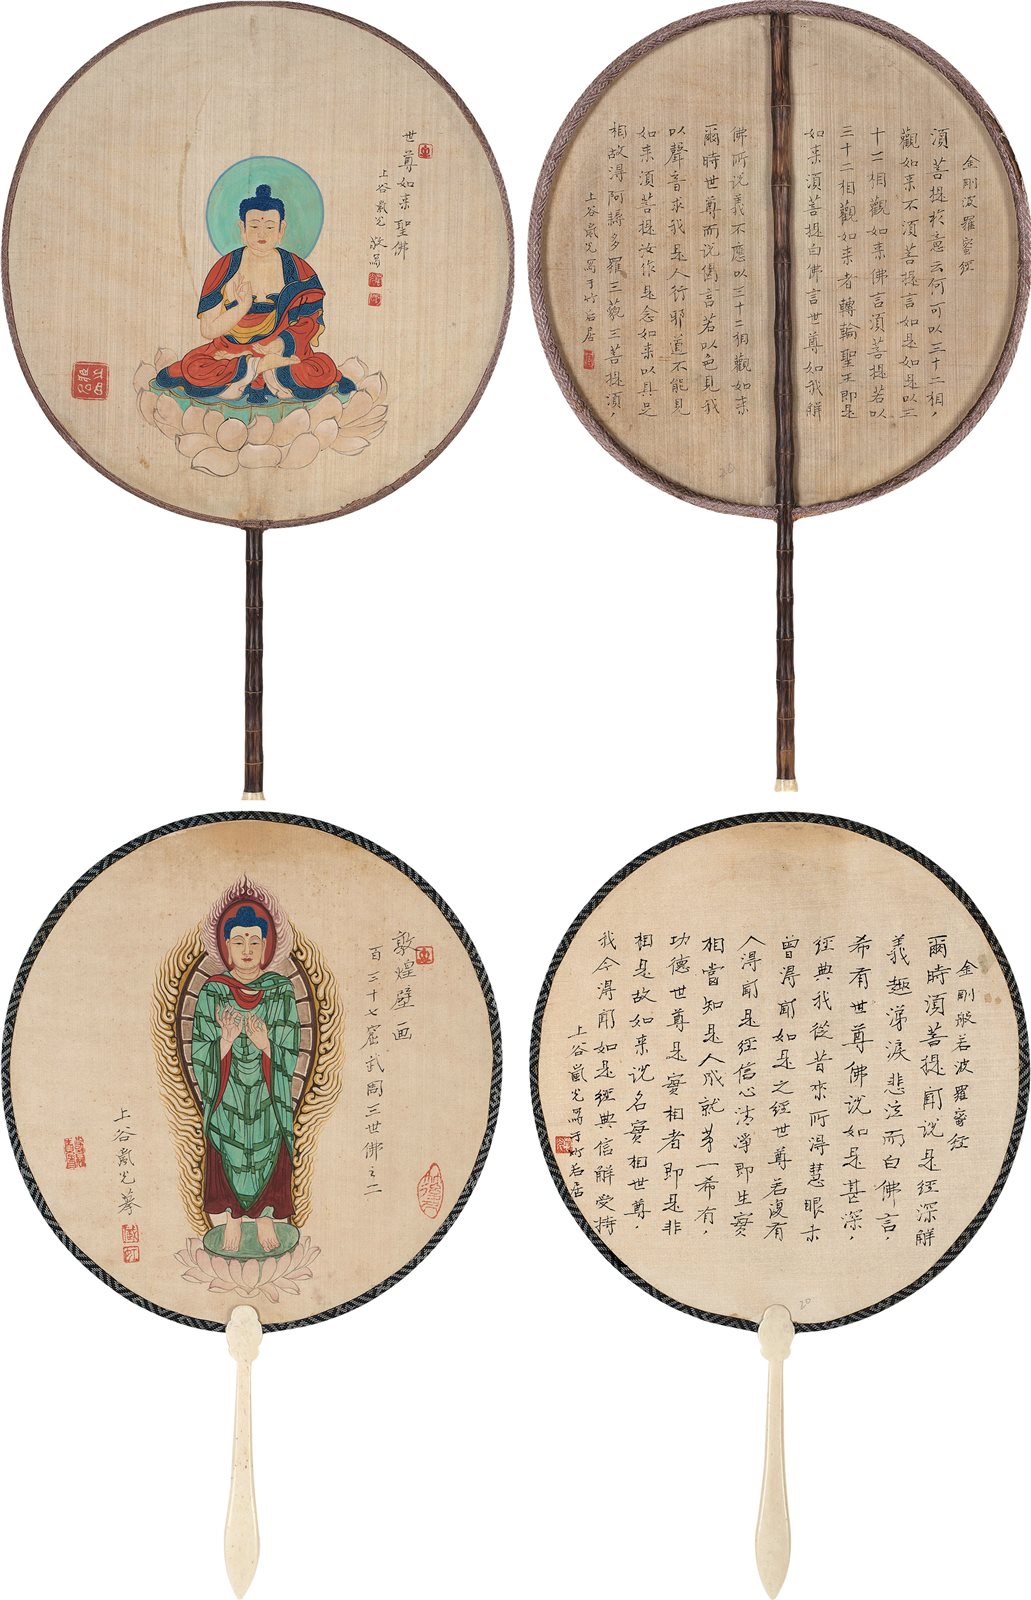 世尊如来聖佛
上谷嚴光敬寫
金剛波羅密經
須菩提於意云何可以三十二相，
觀如来不須菩提言如是如是以三
十二相觀如来佛言須菩提若以
三十二相觀如来者轉輪聖王即是
如来須菩提白佛言世尊如我解
佛所说義不應以三十二相觀如来
爾時世尊而说偈言若以色見我
以聲音求我是人行邪道不能見
如来須菩提汝作是念如来以具足
相故得阿耨多羅三藐三菩提須，
上谷嚴光寫于竹石居
20
敦煌壁画
百三十七窟武周三世佛之二
上谷嚴光摹
金剛般若波羅密經
爾時須菩提聞说是經深解
義趣涕淚悲泣而白佛言，
希有世尊佛说如是甚深，
經典我從昔來所得慧眼未
曾得聞如是之經世尊若復有
人得聞是經信心清淨即生實
相當知是人成就苐一希有，
功德世尊是實相者即是非
相是故如来说名實相世尊，
我今得聞如是經典信解受持
上谷嚴光寫于竹石居
20